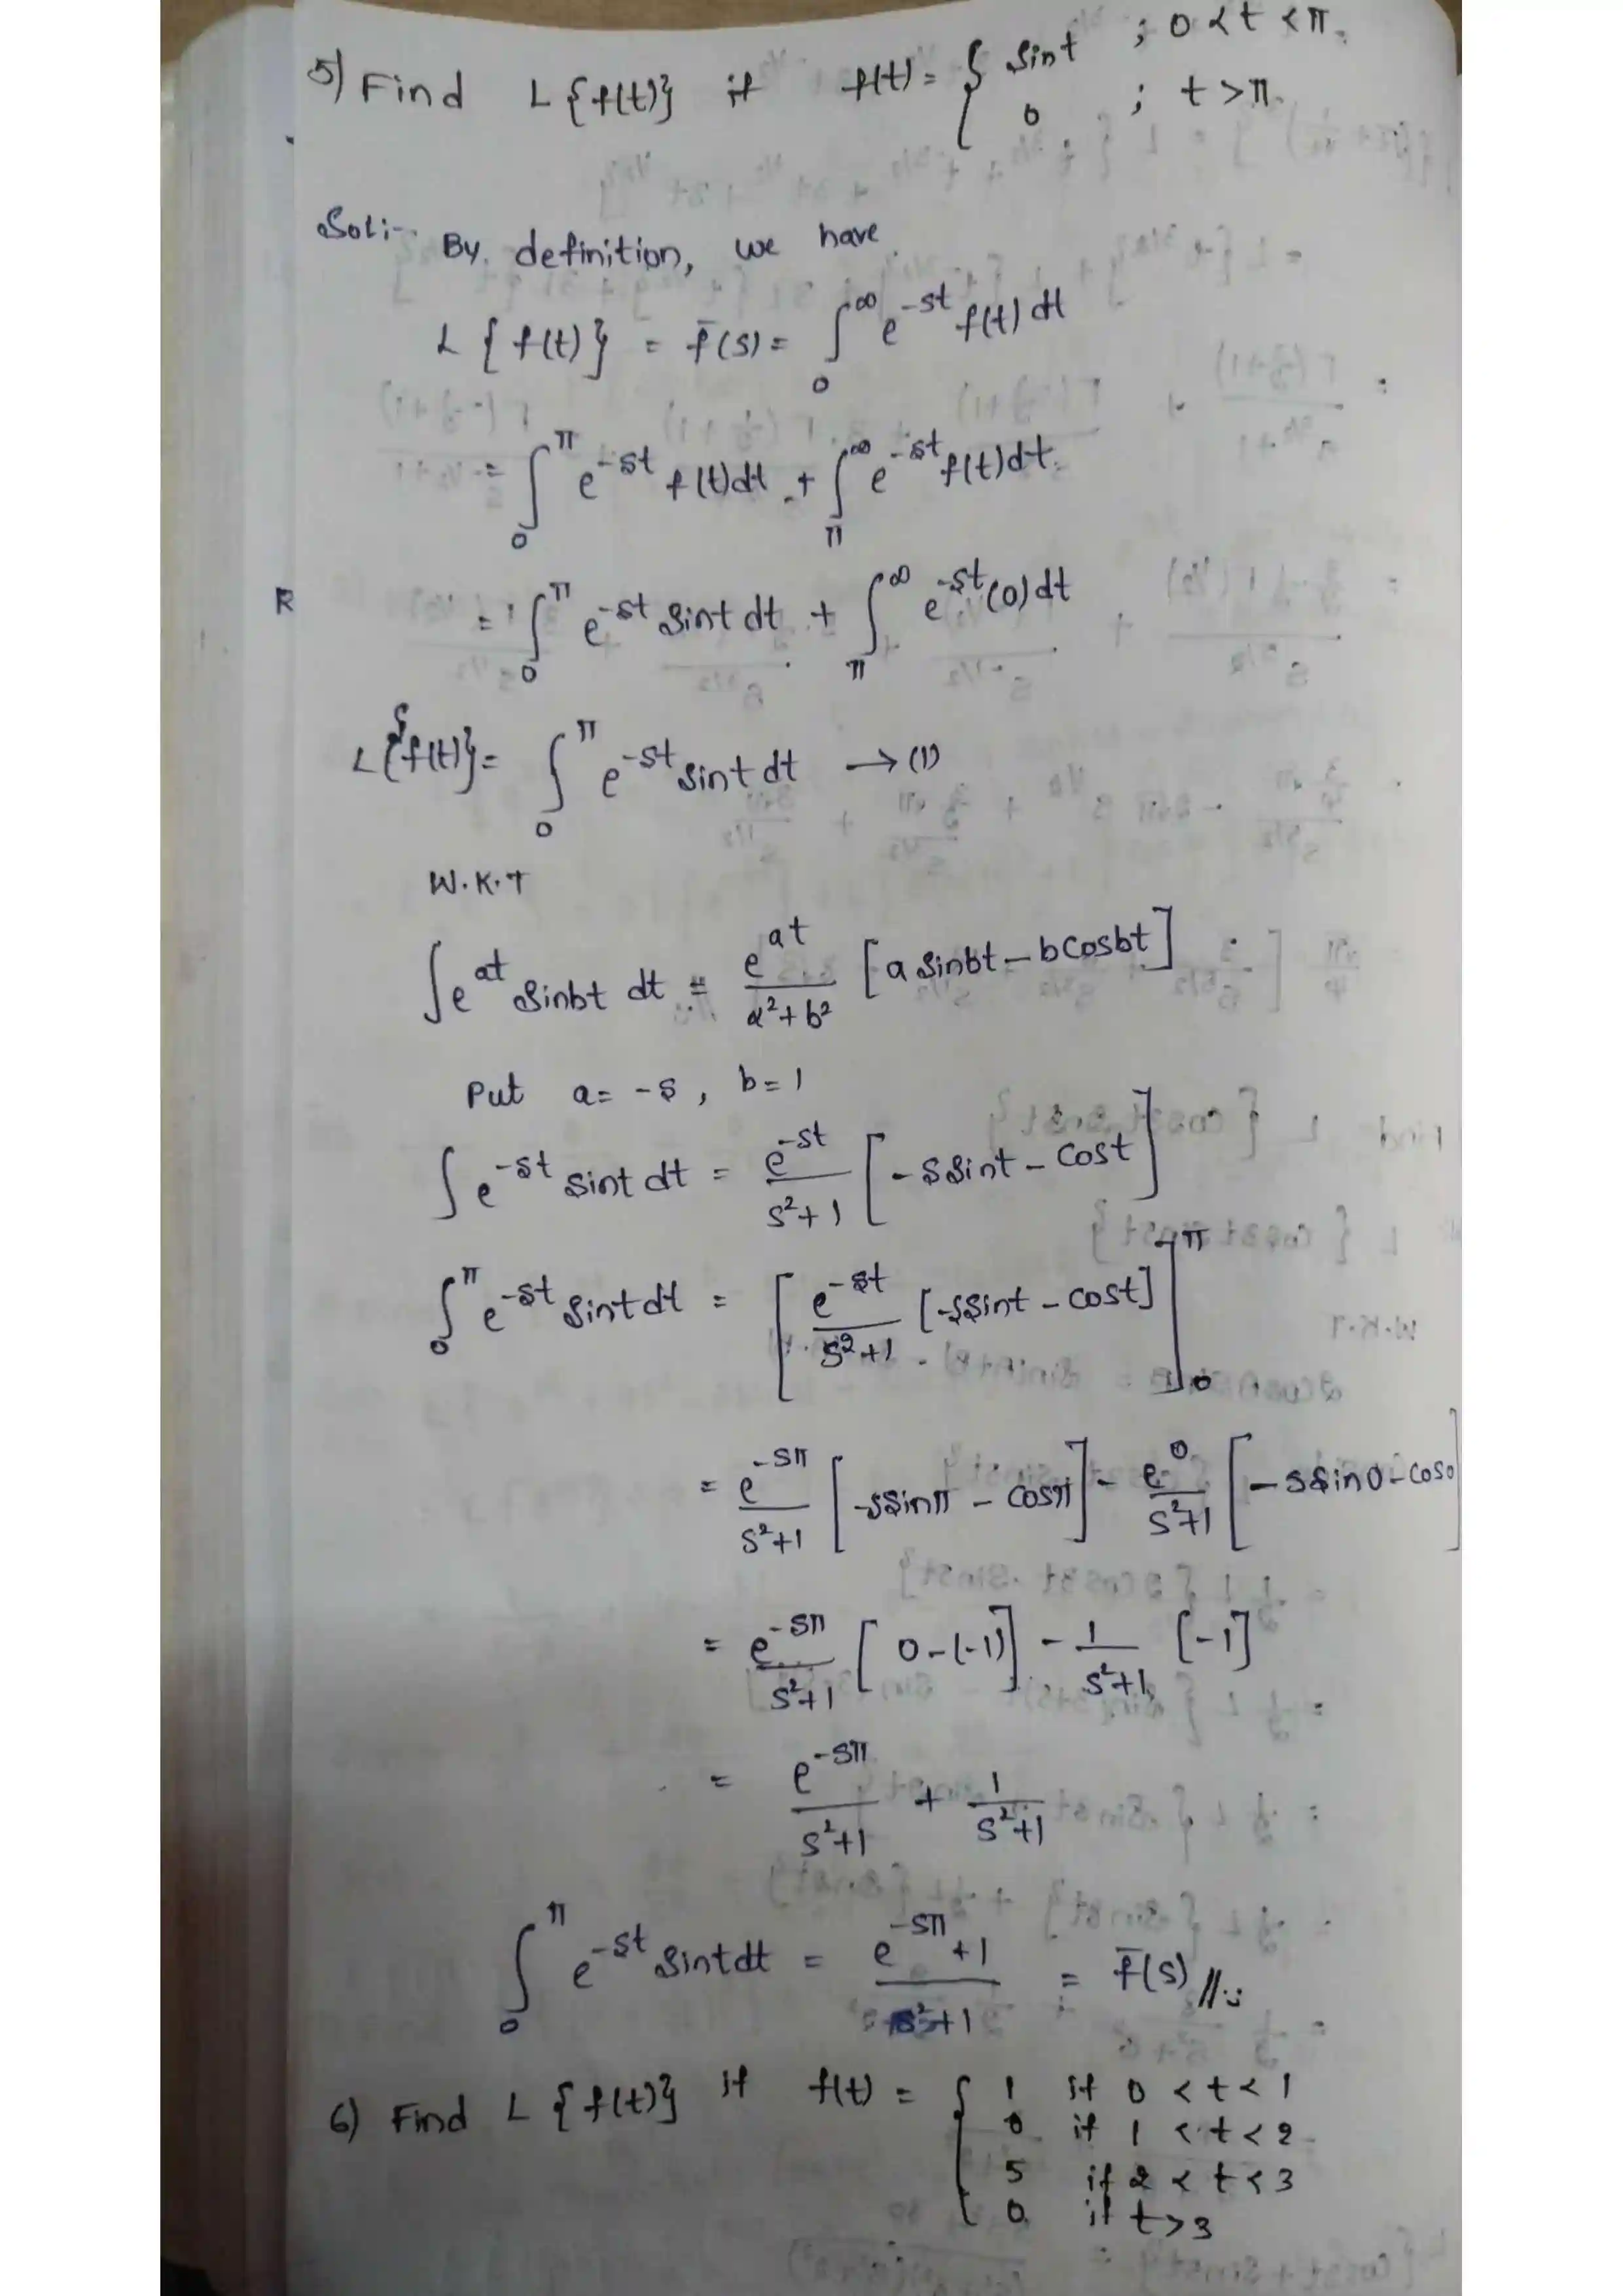 5) Find L{f(t)} if f(t) = { sint ; 0 < t < π.
0 ; t > π.
Sol:- By definition, we have
L{f(t)} = f̄(s) = ∫₀^∞ e^-st f(t) dt
= ∫₀^π e^-st f(t)dt + ∫π^∞ e^-st f(t)dt.
R
= ∫₀^π e^-st sint dt + ∫π^∞ e^-st (0) dt
L{f(t)} = ∫₀^π e^-st sint dt → (1)
W.K.T
∫e^at sinbt dt = e^at/(a²+b²) [a sinbt – b cosbt]
Put a = -s, b = 1
∫e^-st sint dt = e^-st/(s²+1) [-s sint – cost]
∫₀^π e^-st sint dt = [e^-st/(s²+1) [-s sint – cost]]₀^π
= e^-sπ/(s²+1) [-s sinπ – cosπ] – e^0/(s²+1) [-s sin0 – cos0]
= e^-sπ/(s²+1) [0-(-1)] – 1/(s²+1) [-1]
= e^-sπ/(s²+1) + 1/(s²+1)
∫₀^π e^-st sint dt = (e^-sπ + 1)/(s²+1) = f̄(s) //
6) Find L{f(t)} if f(t) = { 1 if 0 < t < 1
0 if 1 < t < 2
5 if 2 < t < 3
0 if t > 3